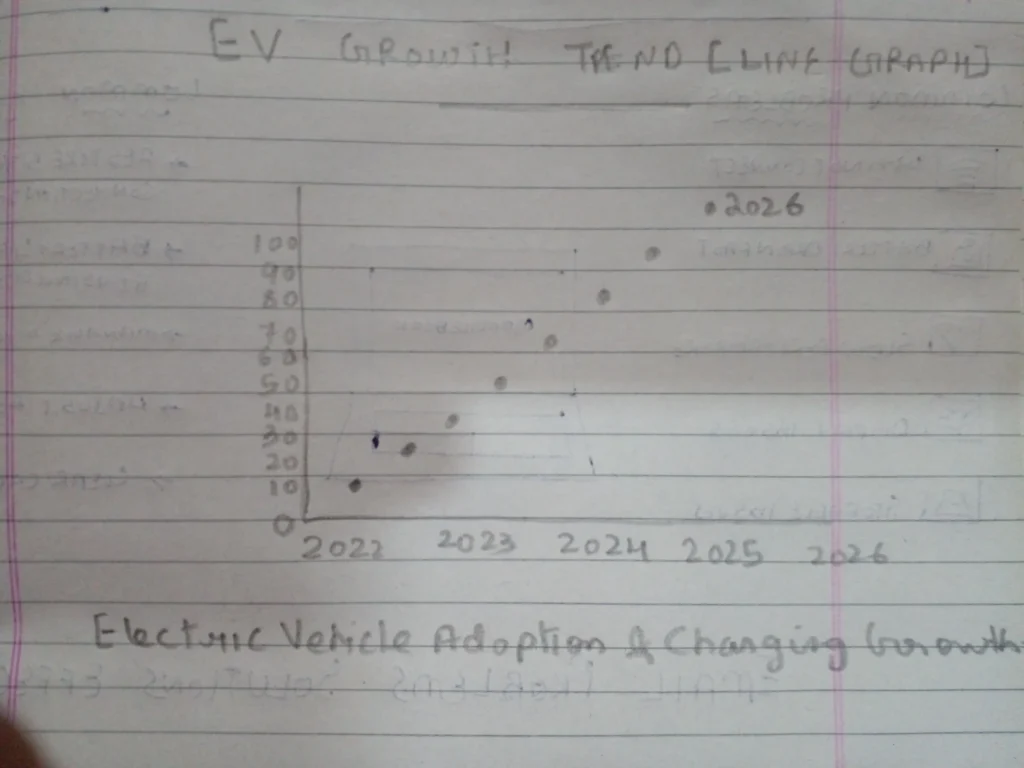 EV GROWTH TREND [LINE GRAPH]
•2026
100
90
80
70
60
50
40
30
20
10
0
2022 2023 2024 2025 2026
Electric Vehicle Adoption & Charging Growth